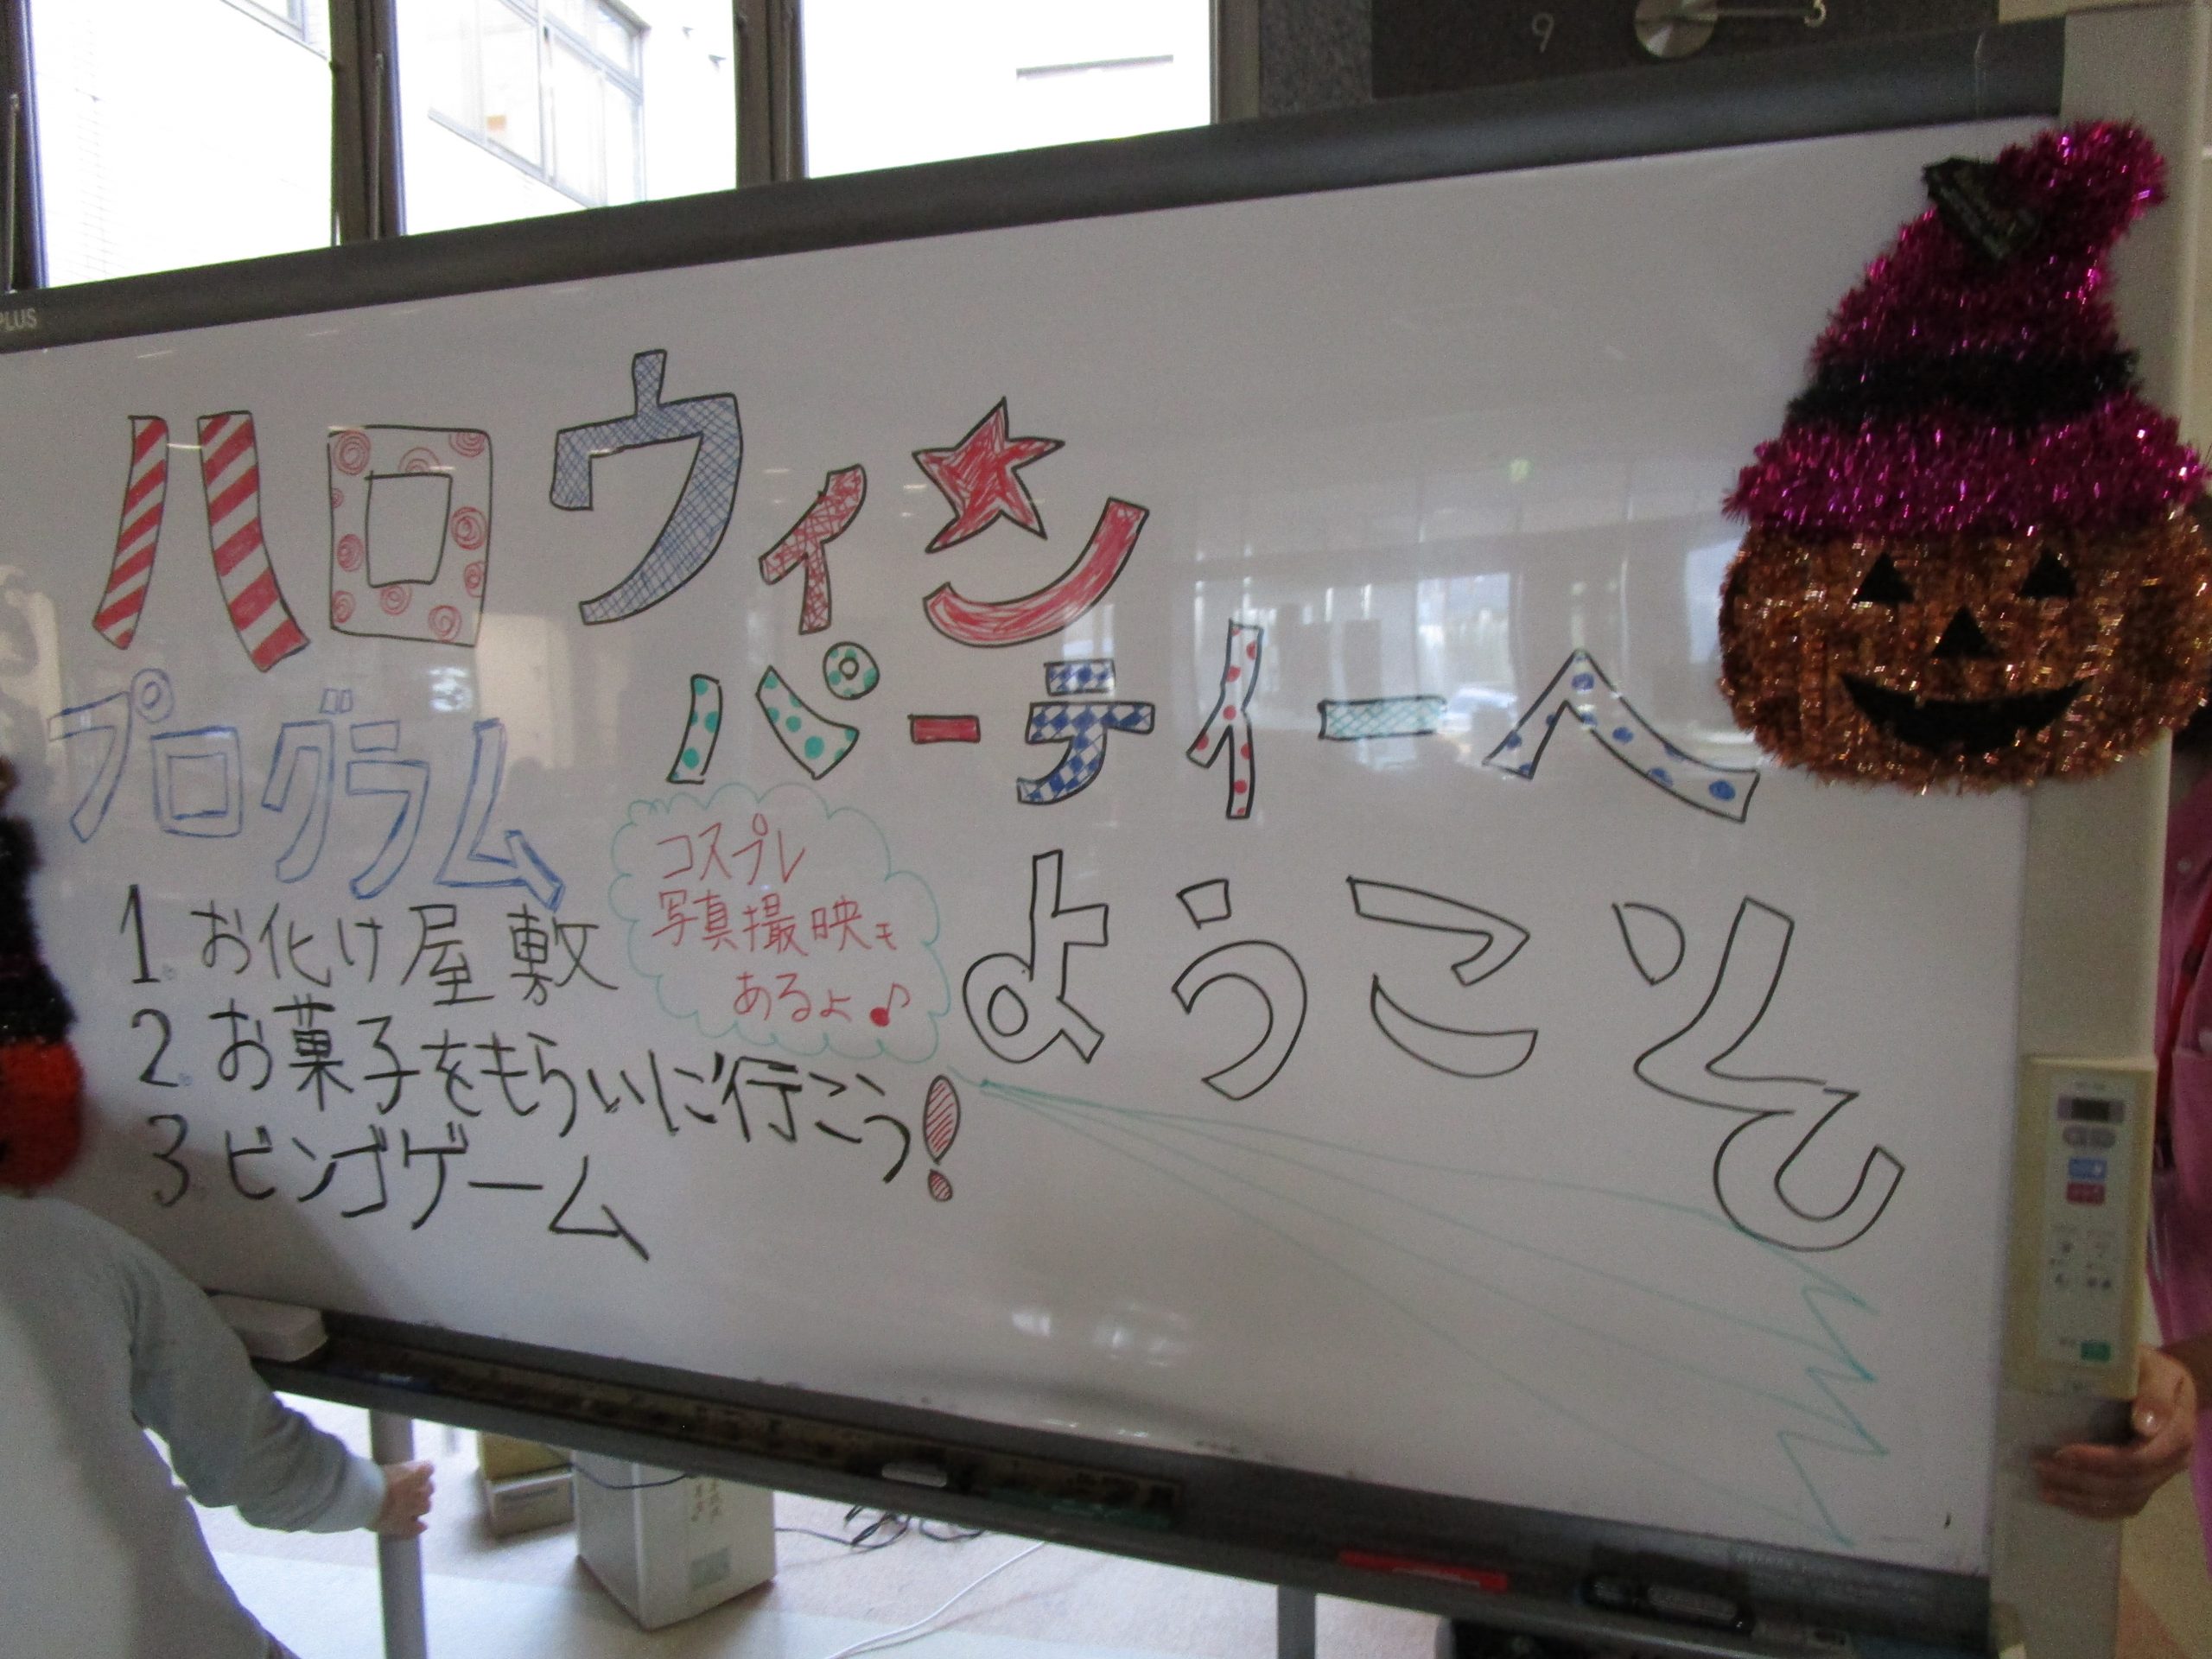 PLUS
9
ハロウィン
パーティーへ
ようこそ
プログラム
1. お化け屋敷
2. お菓子をもらいに行こう!
3. ビンゴゲーム
コスプレ
写真撮映も
あるよ♪